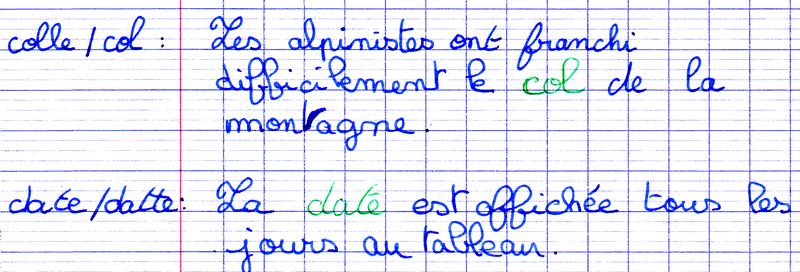 colle/col : Les alpinistes ont franchi
difficilement le col de la
montagne.
date/datte: La date est affichée tous les
jours au tableau.